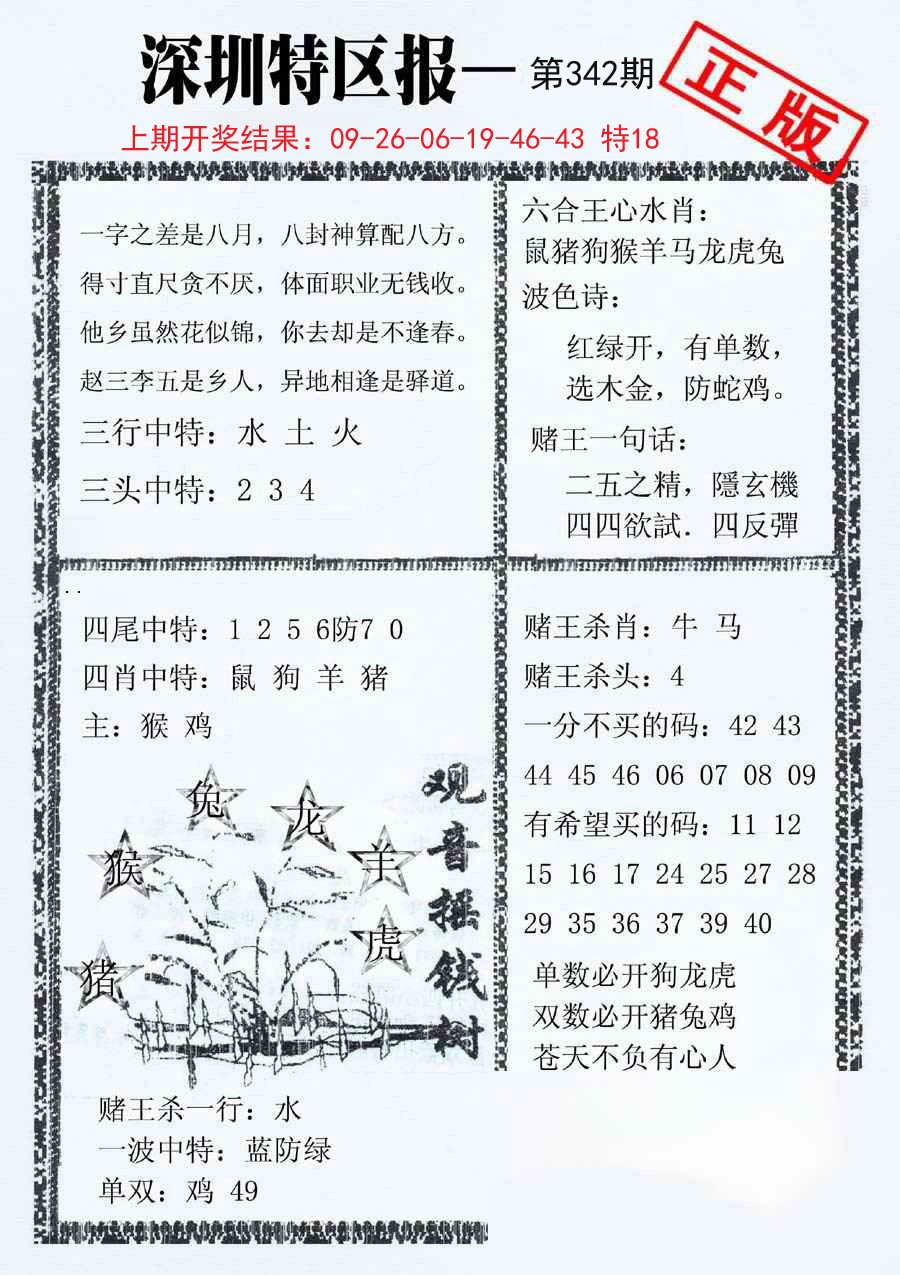 深圳特区报— 第342期
正版
上期开奖结果：09-26-06-19-46-43 特18
一字之差是八月，八封神算配八方。
得寸直尺贪不厌，体面职业无钱收。
他乡虽然花似锦，你去却是不逢春。
赵三李五是乡人，异地相逢是驿道。
三行中特：水 土 火
三头中特：2 3 4
六合王心水肖：
鼠猪狗猴羊马龙虎兔
波色诗：
红绿开，有单数，
选木金，防蛇鸡。
赌王一句话：
二五之精，隱玄機
四四欲試．四反彈
四尾中特：1 2 5 6防7 0
四肖中特：鼠 狗 羊 猪
主：猴 鸡
兔
龙
猴
羊
虎
猪
观音摇钱树
赌王杀一行：水
一波中特：蓝防绿
单双：鸡 49
赌王杀肖：牛 马
赌王杀头：4
一分不买的码：42 43
44 45 46 06 07 08 09
有希望买的码：11 12
15 16 17 24 25 27 28
29 35 36 37 39 40
单数必开狗龙虎
双数必开猪兔鸡
苍天不负有心人